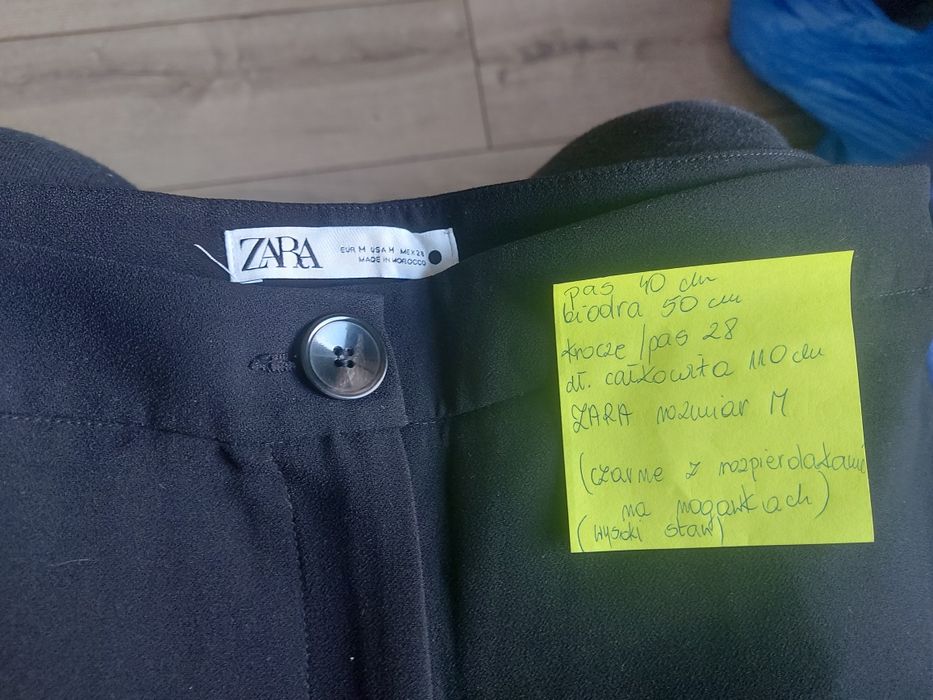 ZARA
EUR M USA M MEX 28
MADE IN MOROCCO
pas 40 cm
biodra 50 cm
krocze / pas 28
dł. całkowita 110 cm
ZARA rozmiar M
(czarne z rozpierdalakami
na nogawkach)
(wysoki stan)